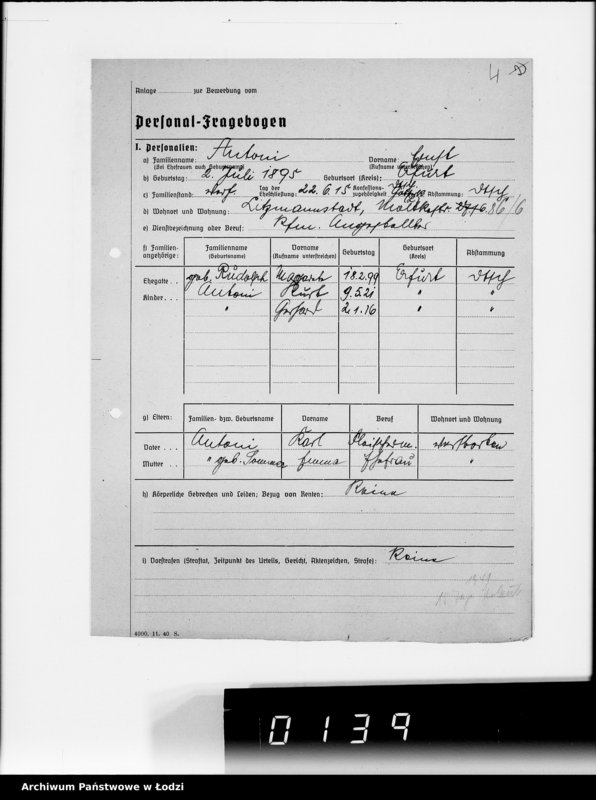 4
Anlage ........ zur Bewerbung vom
Personal-Fragebogen
I. Personalien:
a) Familienname: Antoni Vorname: Ernst
(Bei Ehefrauen auch Geburtsname) (Rufname unterstreichen)
b) Geburtstag: 2. Juli 1895 Geburtsort (Kreis): Erfurt
c) Familienstand: verh. Tag der Eheschließung: 22.6.15 Konfessions-zugehörigkeit Abstammung: dtsch
d) Wohnort und Wohnung: Litzmannstadt, Moltkestr. 86/6
e) Dienstbezeichnung oder Beruf: Kfm. Angestellter
f) Familien-angehörige: Familienname (Geburtsname) Vorname (Rufname unterstreichen) Geburtstag Geburtsort (Kreis) Abstammung
Ehegatte . . geb. Rudolph Margarete 18.2.99 Erfurt dtsch
Kinder . . . Antoni Kurt 9.5.21 " "
" Gerhard 2.1.16 " "
g) Eltern: Familien- bzw. Geburtsname Vorname Beruf Wohnort und Wohnung
Vater . . . Antoni Karl Fleischerm. verstorben
Mutter . . . " geb. Sommer Emma Ehefrau "
h) Körperliche Gebrechen und Leiden; Bezug von Renten: Keine
i) Vorstrafen (Straftat, Zeitpunkt des Urteils, Gericht, Aktenzeichen, Strafe): Keine
4000. 11. 40. S.
0139
Archiwum Państwowe w Łodzi